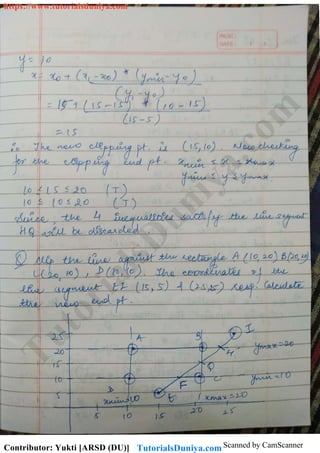 https://www.tutorialsduniya.com
PAGE:
DATE:
y = 10
x = x0 + (x1 - x0) * (ymin - y0)
(y1 - y0)
= 15 + (15 - 15) * (10 - 15)
(15 - 5)
= 15
∴ The new clipping pt. is (15, 10). Now checking
for the clipping end pt. xmin ≤ x ≤ xmax
ymin ≤ y ≤ ymax.
10 ≤ 15 ≤ 20 (T)
10 ≤ 10 ≤ 20 (T)
Since, the 4 inequalities satisfy the line segment
HQ will be discarded.
Q) Clip the line against the rectangle A (10, 20) B(20, 20)
C(20, 10), D(10, 10). The coordinates of the
line segment EI (15, 5) & (25, 25) resp. Calculate
the new end pt.
25
20
15
10
5
A
B
I
H
ymax=20
G
F
C
D
ymin=10
xmin=10
E
xmax=20
5 10 15 20 25
TutorialsDuniya.com
Contributor: Yukti [ARSD (DU)] TutorialsDuniya.com Scanned by CamScanner